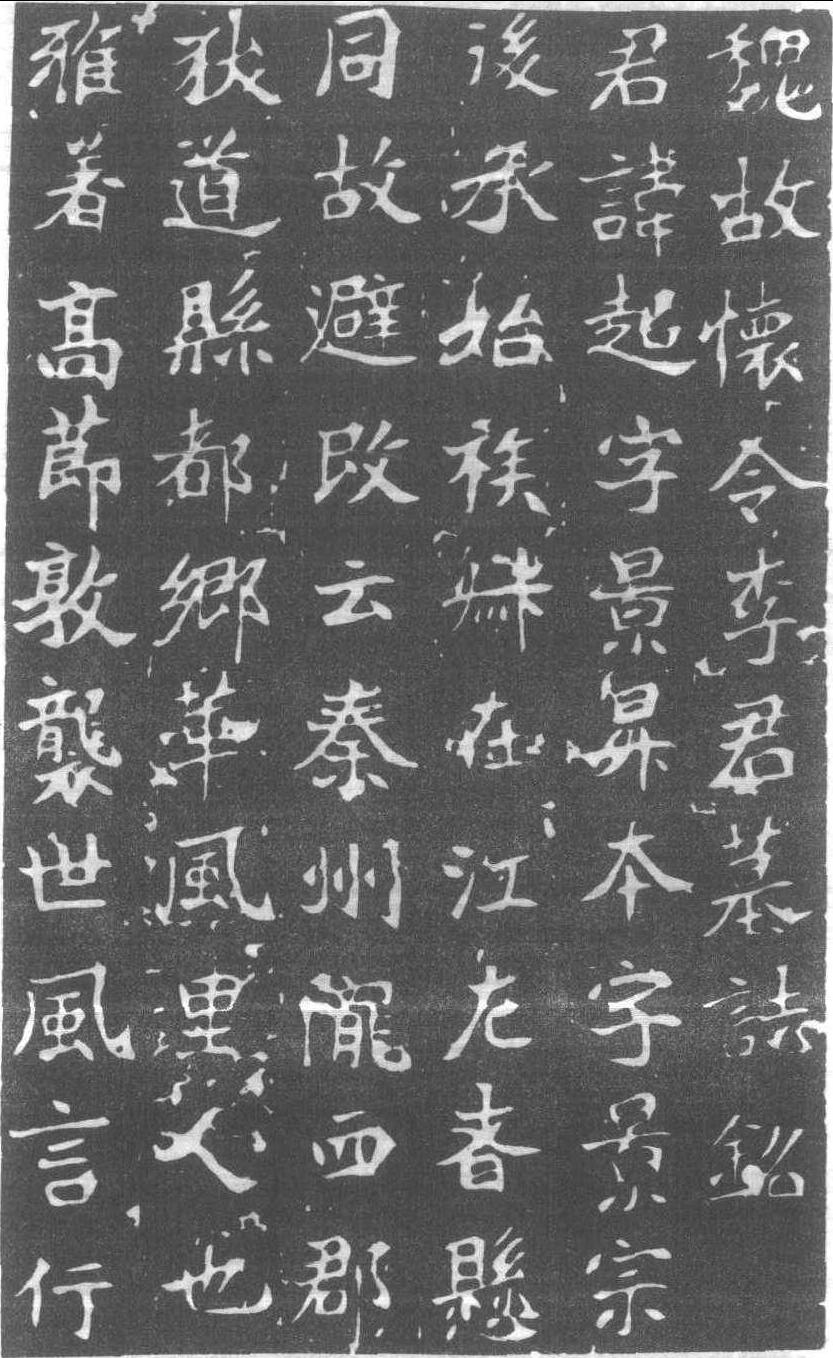 魏故懷令李君墓誌銘
君諱起字景昇本字景宗
後承始族㛮在江左者懸
同故避改云秦州隴西郡
狄道縣都鄉華風里人也
雅著高節敦襲世風言行